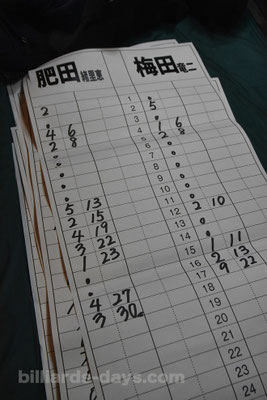 肥田 緒里恵 梅田 竜二
2 1 5
· 2 ·
4 6 3 1 6
2 8 4 2 8
· 5 ·
· 6 ·
· 7 ·
· 8 ·
5 13 9 ·
2 15 10 ·
4 19 11 ·
3 22 12 2 10
1 23 13 ·
· 14 ·
4 27 15 1 11
3 30 16 2 13
17 9 22
18
19
20
21
22
23
24
billiards-days.com